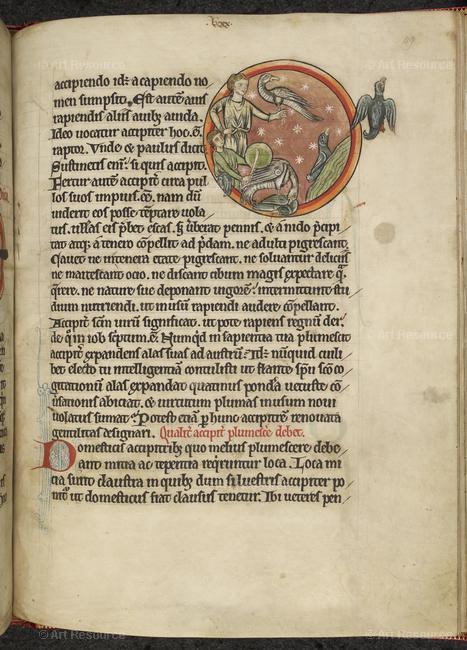 © Art Resource
© Art Resource
accipiendo id÷ a capiendo no
men sumpsit. Est autē auis
rapiendis aliis auibꝫ auida.
Ideo uocatur accipiter hoc.ē.
raptor. Vnde ⁊ paulus dicit.
Sustinetis eni᷒: si quis accipit.
Fertur autē accipit᷑ circa pul
los suos impius.ēē. nam dū
uiderit eos posse tēptare uola
tus. nullas eis p̄bet escas. ꝫ ūberat pennis. ⁊ a nido p̄cipi
tat atqꝫ a tenero cōpellit ad p̄dam. ne adulti pigrescant.
Cauet ne in tenera etate pigrescant. ne soluantur deliciis
ne marcescant ocio. ne discant cibum magis expectare q̄
q̄rere. ne nature sue deponant uigorē. intermittunt stu
dium nutriendi. ut in usū rapiendi audere cōpellant.
Accipit᷑ scm̄ uirū significat. ut pote rapiens regnū dei.
de q̇ in iob sc̄ptum.ē. Nunqid in sapientia tua plumescit
accipit᷑ expandens alas suas ad austrū. Id÷ nūquid cuili
bet electo tu intelligentiā contulisti ut flante spū sc̄o co
gitationū alas expandat quatinus pondꝰa uetuste cō
uˀsationis abiciat. ⁊ uirtutum plumas in usum noui
uolatus sumat. Potest etiā p̱ hunc accipitrē renouata
gentilitas designari. Qualit᷑ accipit᷑ plumescˀe debet.
Domesticis accipitribꝫ quo melius plumescere debe
ant. mitia ac tepentia req̇runtur loca. Loca mi
tia sunt claustra in quibꝫ dum siluestris accipiter po
nit᷑ ut domesticus fiat clausus tenetur. Ibi ueteres pen
© Art Resource
© Art Resource